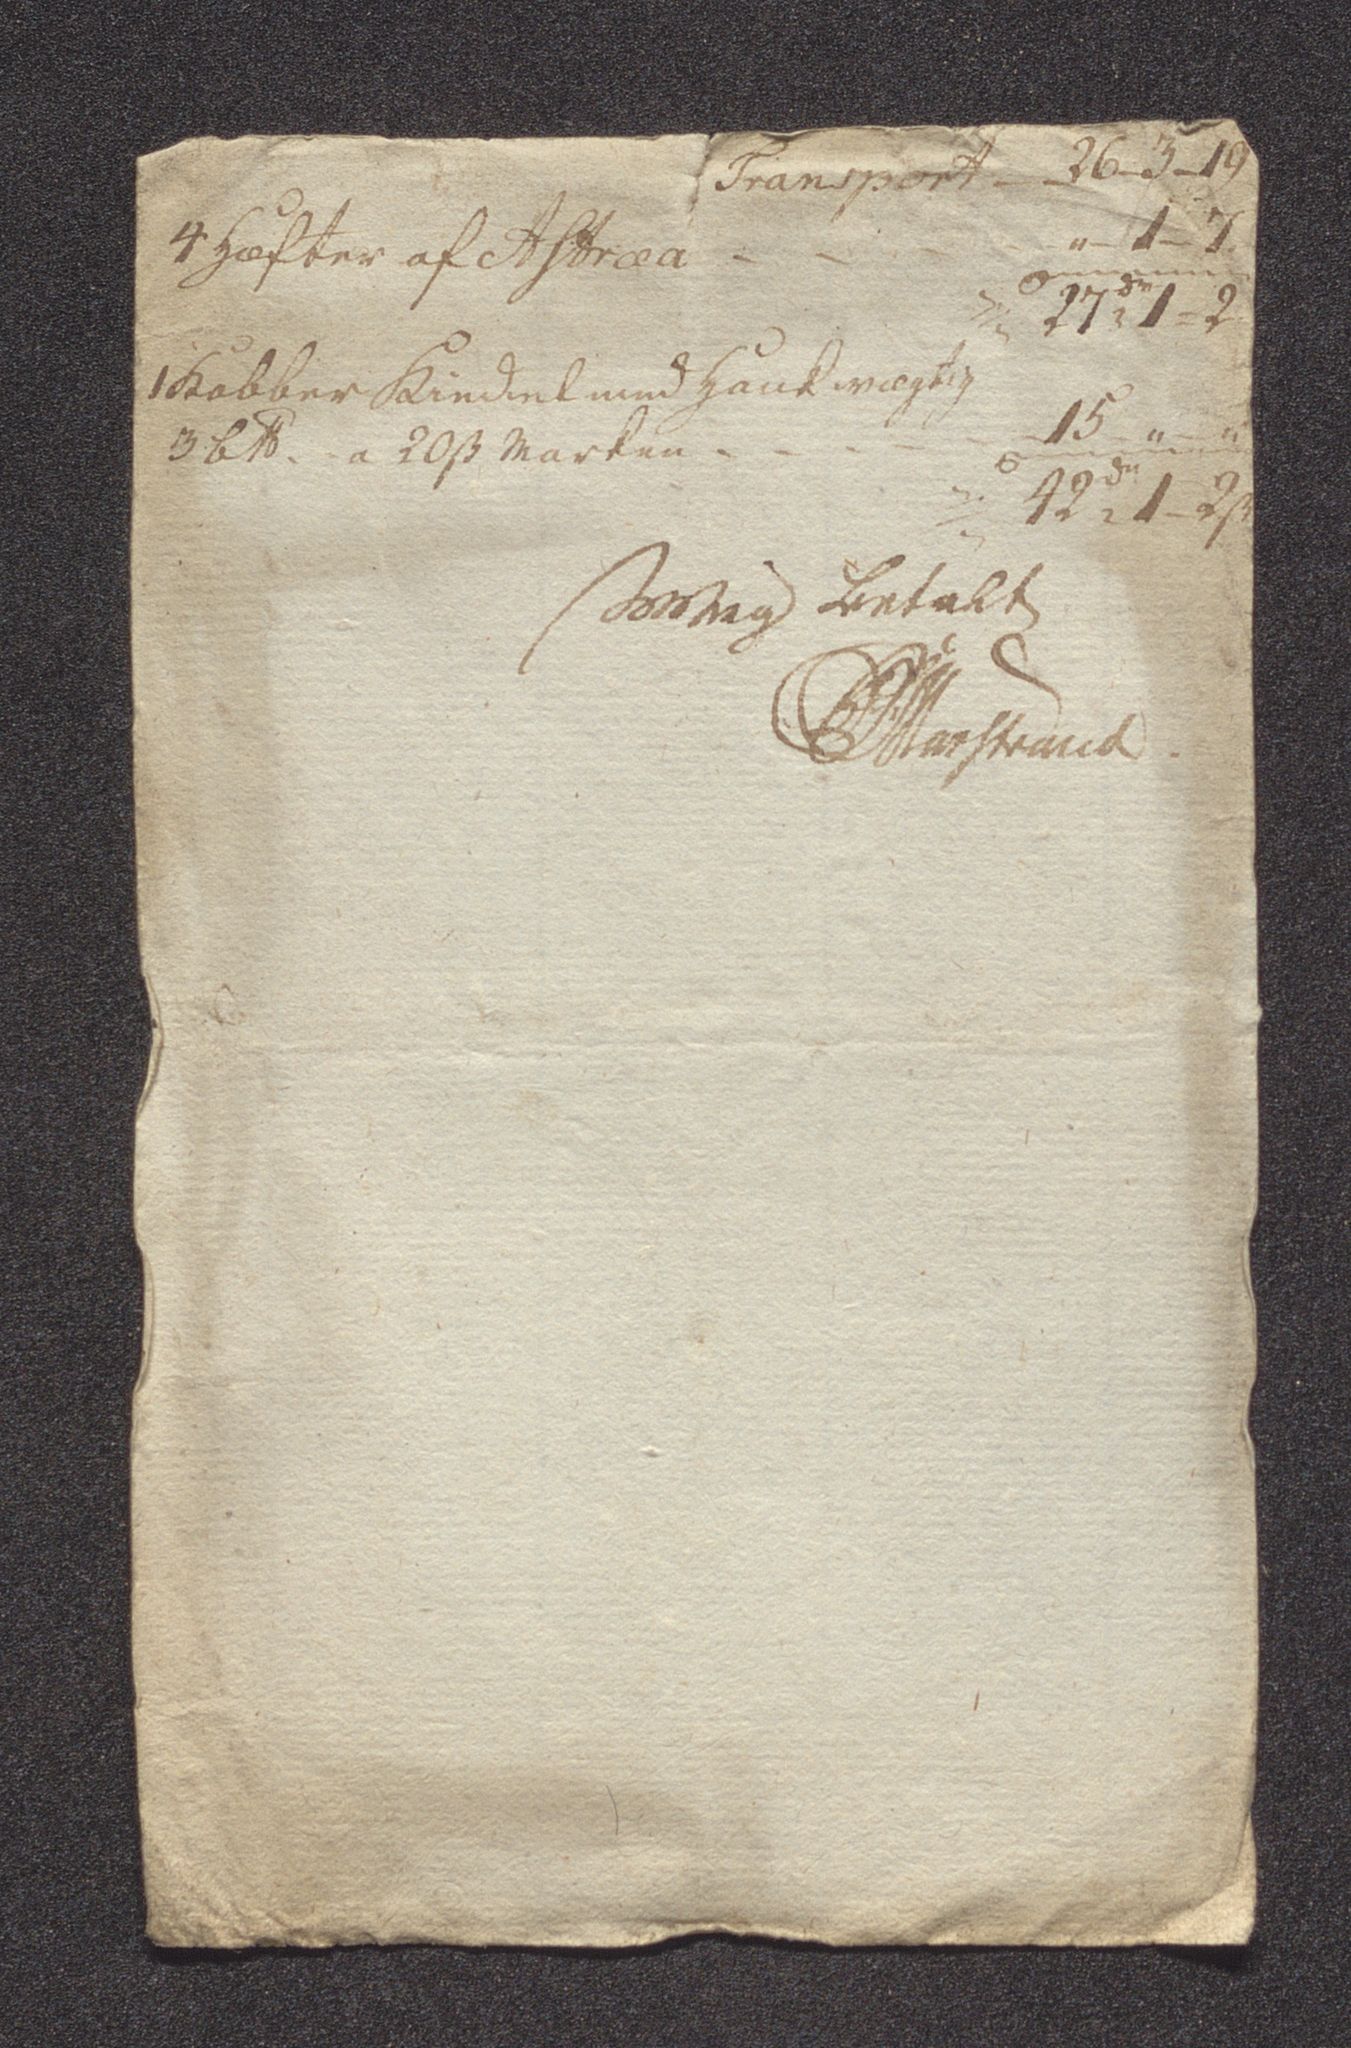 Transport — 26 – 3 – 19
4 Hæfter af Astræa - - - - - " – 1 – 7.
27 dr 1 – 2
1 Kobber Kiedel med Hank vægtig
3 b℔. - a 20 ß Marken - - - - - 15 – " – "
42 dr 1 – 2 ß
betalt
Marstrand.